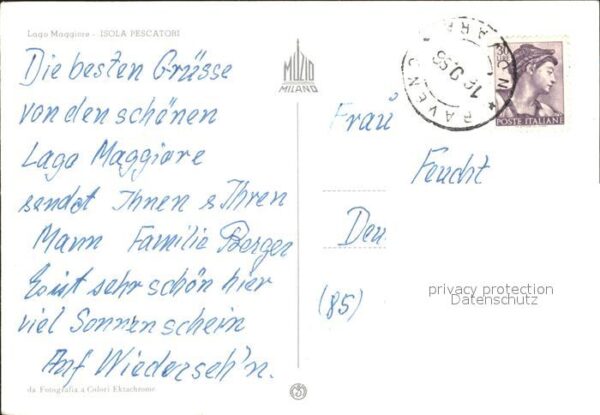 Lago Maggiore - ISOLA PESCATORI
Die besten Grüsse
von den schönen
Lago Maggiore
sendet Ihnen & Ihren
Mann Familie Berger
Es ist sehr schön hier
viel Sonnenschein
Auf Wiederseh'n.
da Fotografia a Colori Ektachrome
MUZIO
MILANO
3
RAVENO
POSTE ITALIANE
Frau
Feucht
Deu
(85)
privacy protection
Datenschutz